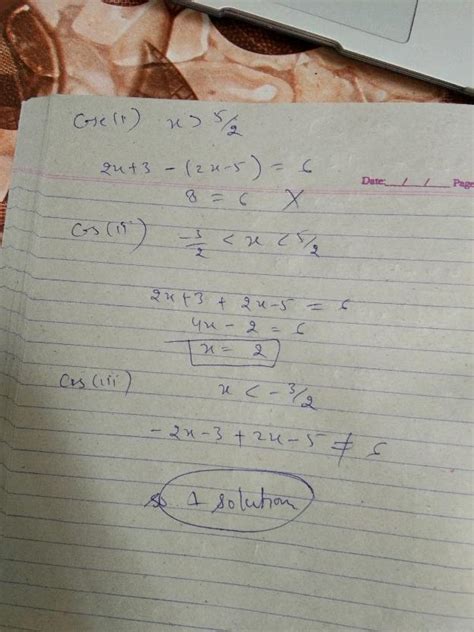 Case(i) x > 5/2
2x+3 - (2x-5) = 6
Date: / / Page
8 = 6 X
Cas(ii) -3/2 < x < 5/2
2x+3 + 2x-5 = 6
4x - 2 = 6
x = 2
Cas(iii) x < -3/2
-2x-3+2x-5 ≠ 6
so 1 solution